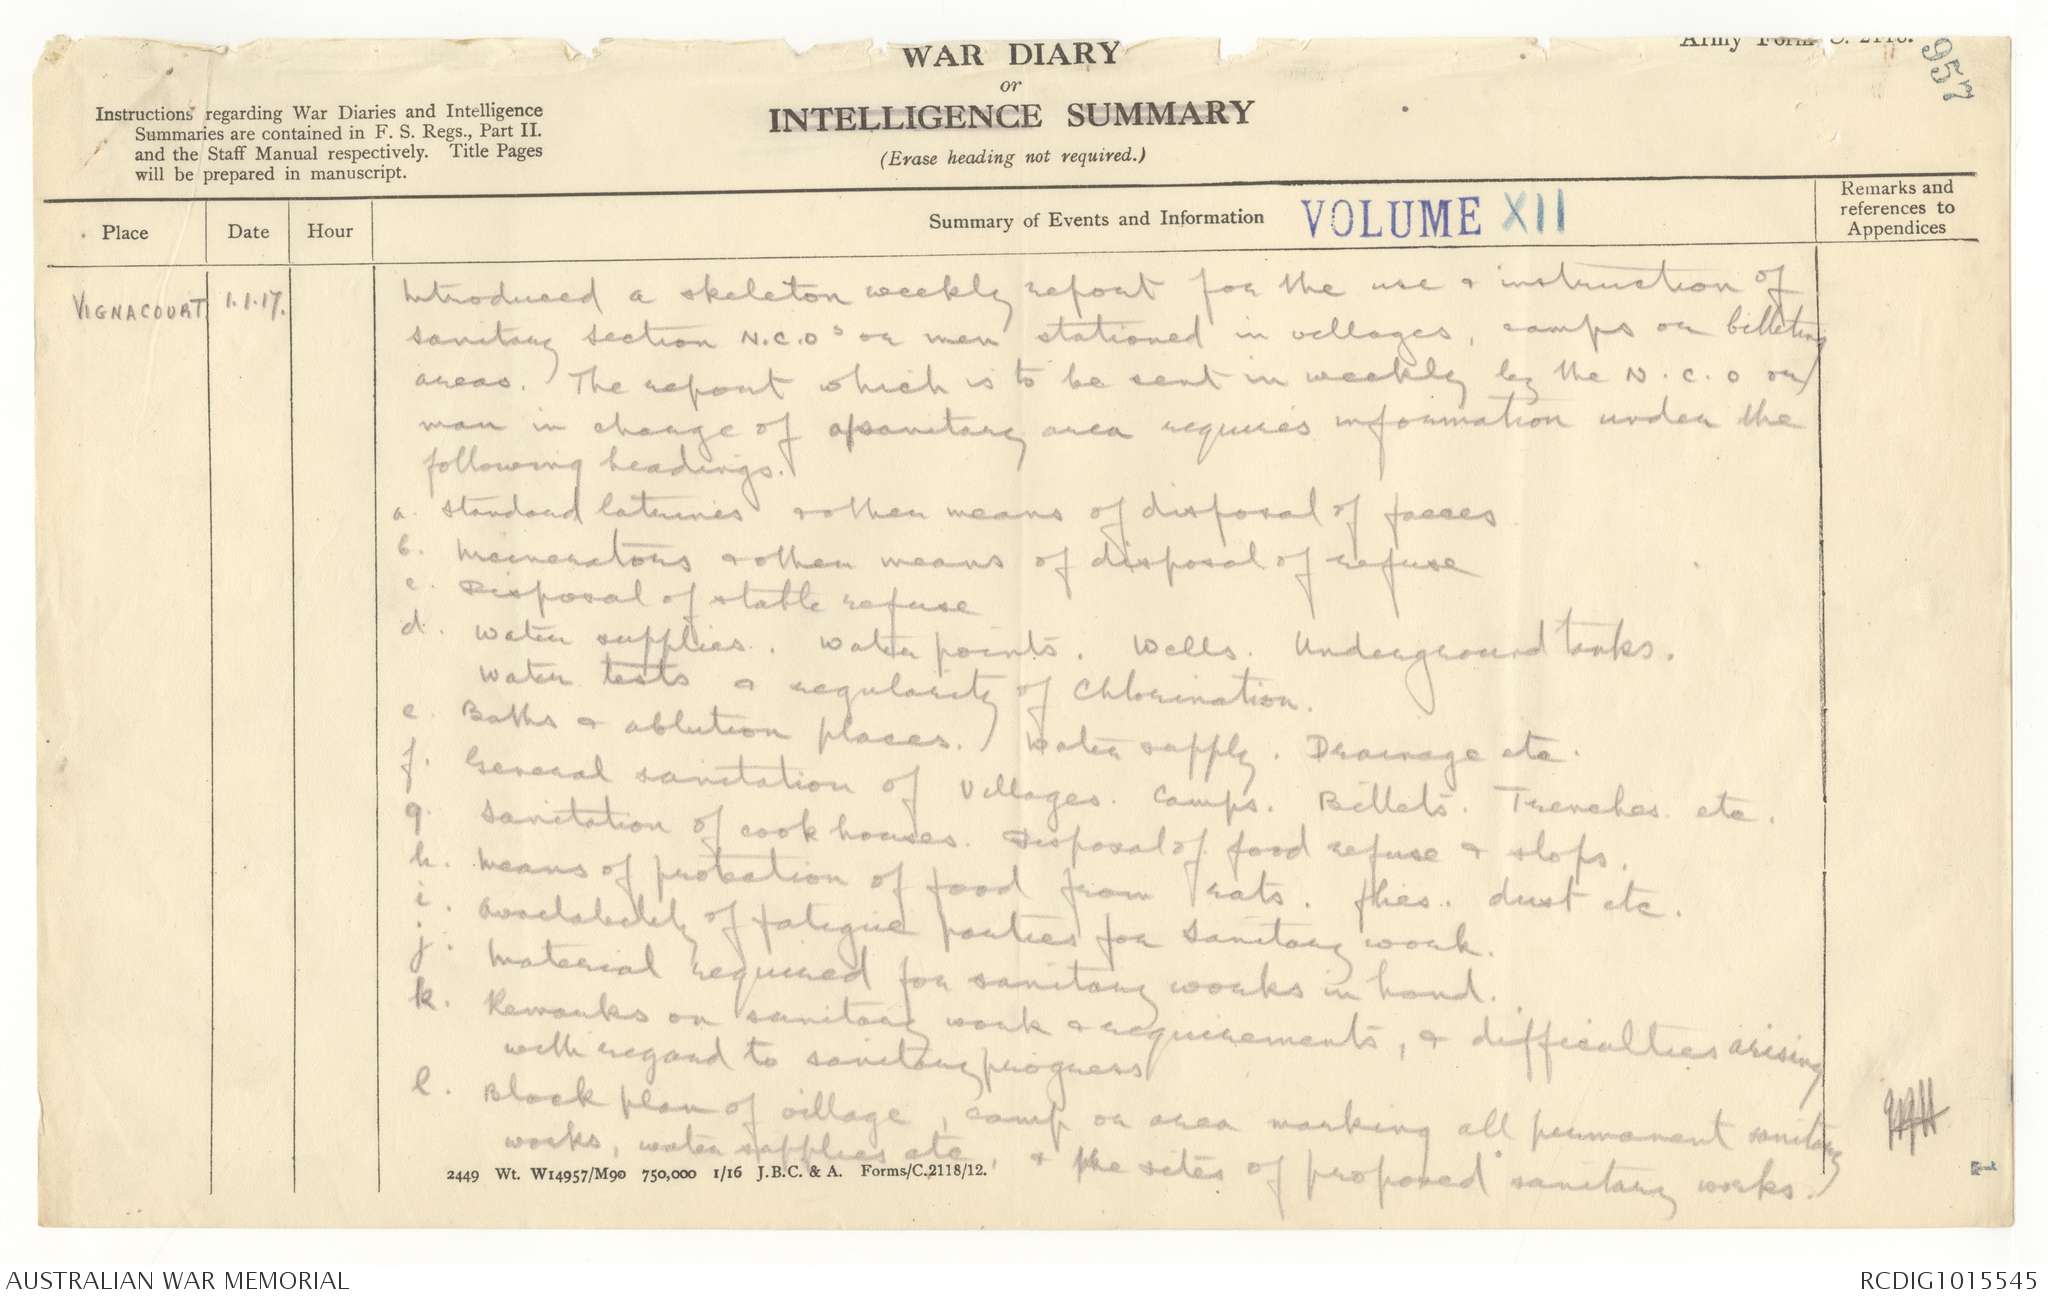 Army Form C. 2118.
957
WAR DIARY
or
INTELLIGENCE SUMMARY
(Erase heading not required.)
Instructions regarding War Diaries and Intelligence
Summaries are contained in F. S. Regs., Part II.
and the Staff Manual respectively. Title Pages
will be prepared in manuscript.
Place
Date
Hour
Summary of Events and Information
VOLUME XII
Remarks and
references to
Appendices
VIGNACOURT
1.1.17.
Introduced a skeleton weekly report for the use & instruction of
sanitary section N.C.Os or men stationed in villages, camps or billeting
areas. The report which is to be sent in weekly by the N.C.O or
man in charge of a sanitary area requires information under the
following headings.
a. Standard latrines & other means of disposal of faeces
b. Incinerators & other means of disposal of refuse
c. Disposal of stable refuse
d. Water supplies. Water points. Wells. Underground tanks.
Water tests & regularity of Chlorination.
e. Baths & ablution places. Water supply. Drainage etc.
f. General sanitation of Villages. Camps. Billets. Trenches. etc.
g. Sanitation of cook houses. Disposal of food refuse & slops.
h. Means of protection of food from rats. flies. dust etc.
i. Availability of fatigue parties for sanitary work.
j. Material required for sanitary works in hand.
k. Remarks on sanitary work & requirements, & difficulties arising
with regard to sanitary progress
l. Block plan of village, camp or area marking all permanent sanitary
works, water supplies etc, & the sites of proposed sanitary works.
2449 Wt. W14957/M90 750,000 1/16 J.B.C. & A. Forms/C.2118/12.
AUSTRALIAN WAR MEMORIAL
RCDIG1015545